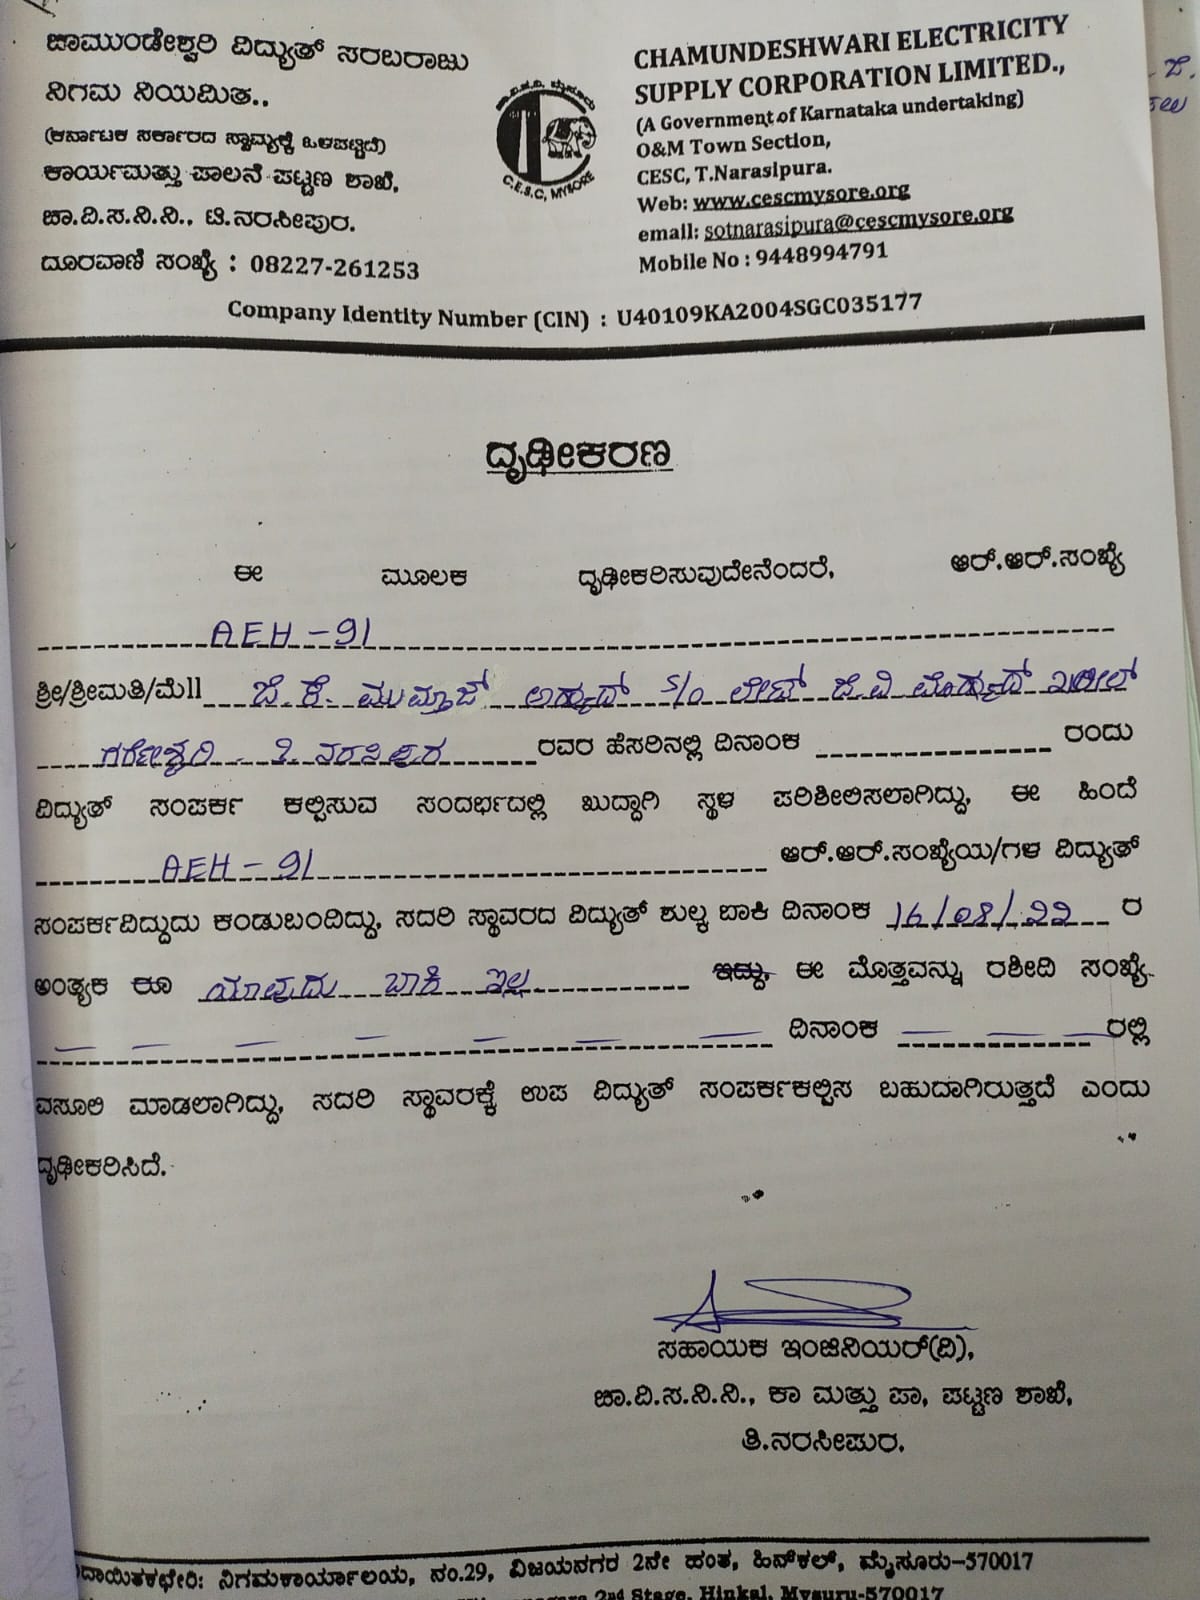 ಚಾಮುಂಡೇಶ್ವರಿ ವಿದ್ಯುತ್ ಸರಬರಾಜು
ನಿಗಮ ನಿಯಮಿತ.,
(ಕರ್ನಾಟಕ ಸರ್ಕಾರದ ಸ್ವಾಮ್ಯಕ್ಕೆ ಒಳಪಟ್ಟಿದೆ)
ಕಾರ್ಯಮತ್ತು ಪಾಲನೆ ಪಟ್ಟಣ ಶಾಖೆ,
ಚಾ.ವಿ.ಸ.ನಿ.ನಿ., ಟಿ.ನರಸೀಪುರ.
ದೂರವಾಣಿ ಸಂಖ್ಯೆ : 08227-261253
C.E.S.C, MYSORE
CHAMUNDESHWARI ELECTRICITY
SUPPLY CORPORATION LIMITED.,
(A Government of Karnataka undertaking)
O&M Town Section,
CESC, T.Narasipura.
Web: www.cescmysore.org
email: sotnarasipura@cescmysore.org
Mobile No : 9448994791
Company Identity Number (CIN) : U40109KA2004SGC035177
ದೃಢೀಕರಣ
ಈ ಮೂಲಕ ದೃಢೀಕರಿಸುವುದೇನೆಂದರೆ, ಆರ್.ಆರ್.ಸಂಖ್ಯೆ
AEH-91
ಶ್ರೀ/ಶ್ರೀಮತಿ/ಮೆ॥ ಜೆ.ಕೆ. ಮುಮ್ತಾಜ್ ಅಹ್ಮದ್ S/o ಲೇಟ್ ಜಿ ವಿ ಮೊಹ್ಮದ್ ಖಲೀಲ್
ಗರ್ಗೇಶ್ವರಿ ತಿ ನರಸೀಪುರ ರವರ ಹೆಸರಿನಲ್ಲಿ ದಿನಾಂಕ ರಂದು
ವಿದ್ಯುತ್ ಸಂಪರ್ಕ ಕಲ್ಪಿಸುವ ಸಂದರ್ಭದಲ್ಲಿ ಖುದ್ದಾಗಿ ಸ್ಥಳ ಪರಿಶೀಲಿಸಲಾಗಿದ್ದು, ಈ ಹಿಂದೆ
AEH-91 ಆರ್.ಆರ್.ಸಂಖ್ಯೆಯ/ಗಳ ವಿದ್ಯುತ್
ಸಂಪರ್ಕವಿದ್ದುದು ಕಂಡುಬಂದಿದ್ದು, ಸದರಿ ಸ್ಥಾವರದ ವಿದ್ಯುತ್ ಶುಲ್ಕ ಬಾಕಿ ದಿನಾಂಕ 16/08/22 ರ
ಅಂತ್ಯಕ ರೂ ಯಾವುದು ಬಾಕಿ ಇಲ್ಲ ಇದ್ದು, ಈ ಮೊತ್ತವನ್ನು ರಶೀದಿ ಸಂಖ್ಯೆ
ದಿನಾಂಕ ರಲ್ಲಿ
ವಸೂಲಿ ಮಾಡಲಾಗಿದ್ದು, ಸದರಿ ಸ್ಥಾವರಕ್ಕೆ ಉಪ ವಿದ್ಯುತ್ ಸಂಪರ್ಕಕಲ್ಪಿಸ ಬಹುದಾಗಿರುತ್ತದೆ ಎಂದು
ದೃಢೀಕರಿಸಿದೆ.
ಸಹಾಯಕ ಇಂಜಿನಿಯರ್(ವಿ),
ಚಾ.ವಿ.ಸ.ನಿ.ನಿ., ಕಾ ಮತ್ತು ಪಾ, ಪಟ್ಟಣ ಶಾಖೆ,
ತಿ.ನರಸೀಪುರ.
ನಿಗಮಕಾರ್ಯಾಲಯ, ನಂ.29, ವಿಜಯನಗರ 2ನೇ ಹಂತ, ಹಿನ್‌ಕಲ್, ಮೈಸೂರು-570017
2nd Stage, Hinkal, Mysuru-570017